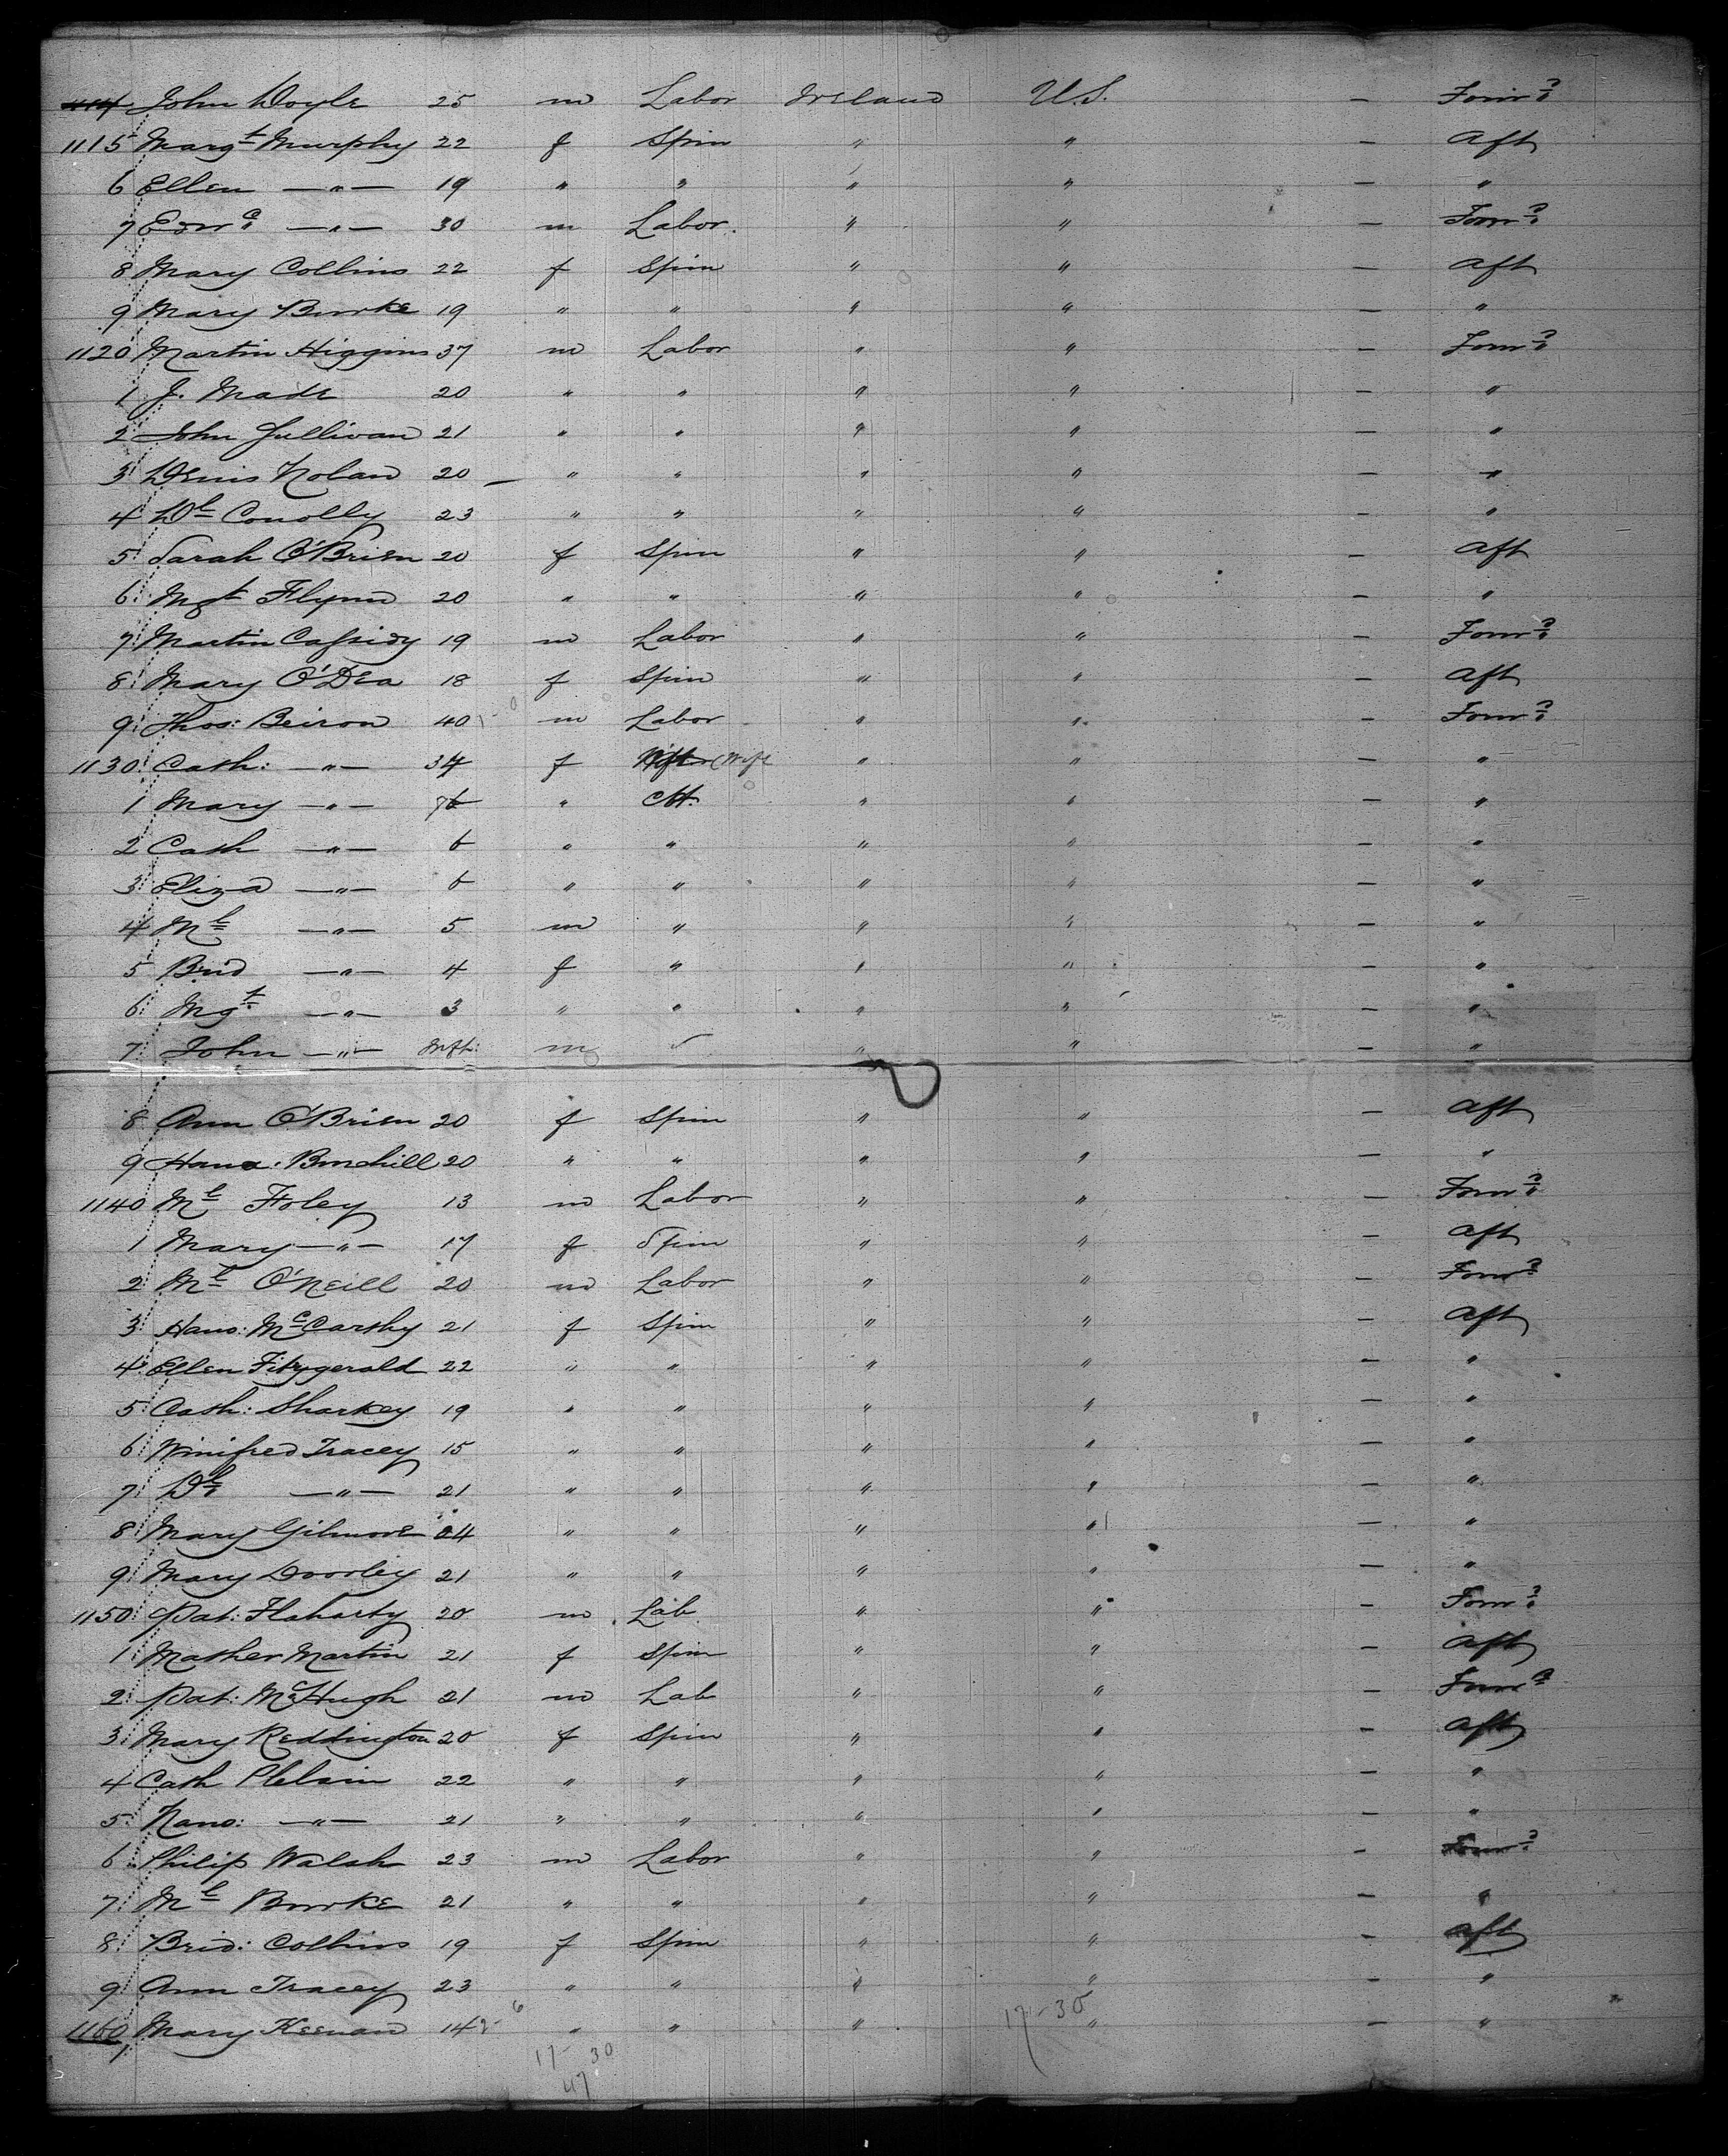 1114 John Doyle 25 m Labor Ireland U.S. — Forwd
1115 Margt Murphy 22 f Spin " " — Aft
6 Ellen —"— 19 " " " " — "
7 Edwd —"— 30 m Labor. " " — Forwd
8 Mary Collins 22 f Spin " " — Aft
9 Mary Burke 19 " " " " — "
1120 Martin Higgins 37 m Labor " " — Forwd
1 J. Made 20 " " " " — "
2 John Sullivan 21 " " " " — "
3 Denis Nolan 20 — " " " " — "
4 Dl Conolly 23 " " " " — "
5 Sarah O'Brien 20 f Spin " " — Aft
6 Mgt Flynn 20 " " " " — "
7 Martin Cassidy 19 m Labor " " — Forwd
8 Mary O'Dea 18 f Spin " " — Aft
9 Thos: Beiron 40 m Labor " " — Forwd
1130 Cath: —"— 34 f Wife " " — "
1 Mary —"— " Cht. " " — "
2 Cath —"— 6 " " " " — "
3 Eliza —"— 6 " " " " — "
4 Ml —"— 5 m " " " — "
5 Brid —"— 4 f " " " — "
6 Mgt —"— 3 " " " " — "
7 John —"— Inft: m " " — "
8 Ann O'Brien 20 f Spin " " — Aft
9 Hana: 20 " " " " — "
1140 Ml Foley 13 m Labor " " — Forwd
1 Mary —"— 17 f Spin " " — Aft
2 Ml O'Neill 20 m Labor " " — Forwd
3 Hano: McCarthy 21 f Spin " " — Aft
4 Ellen Fitzgerald 22 " " " " — "
5 Cath: Sharkey 19 " " " " — "
6 Winifred Tracey 15 " " " " — "
7 —"— 21 " " " " — "
8 Mary Gilmore 24 " " " " — "
9 Mary Doorley 21 " " " " — "
1150 Pat: Flaharty 20 m Lab " " — Forwd
1 Mather Martin 21 f Spin " " — Aft
2 Pat: McHugh 21 m Lab " " — Forwd
3 Mary Reddington 20 f Spin " " — Aft
4 Cath 22 " " " " — "
5 Nano: —"— 21 " " " " — "
6 Philip Walsh 23 m Labor " " — Forwd
7 Ml Burke 21 " " " " — "
8 Brid: Collins 19 f Spin " " — Aft
9 Ann Tracey 23 " " " " — "
1160 Mary Keenan 14 " " " " — "
17-30
17- 30
47